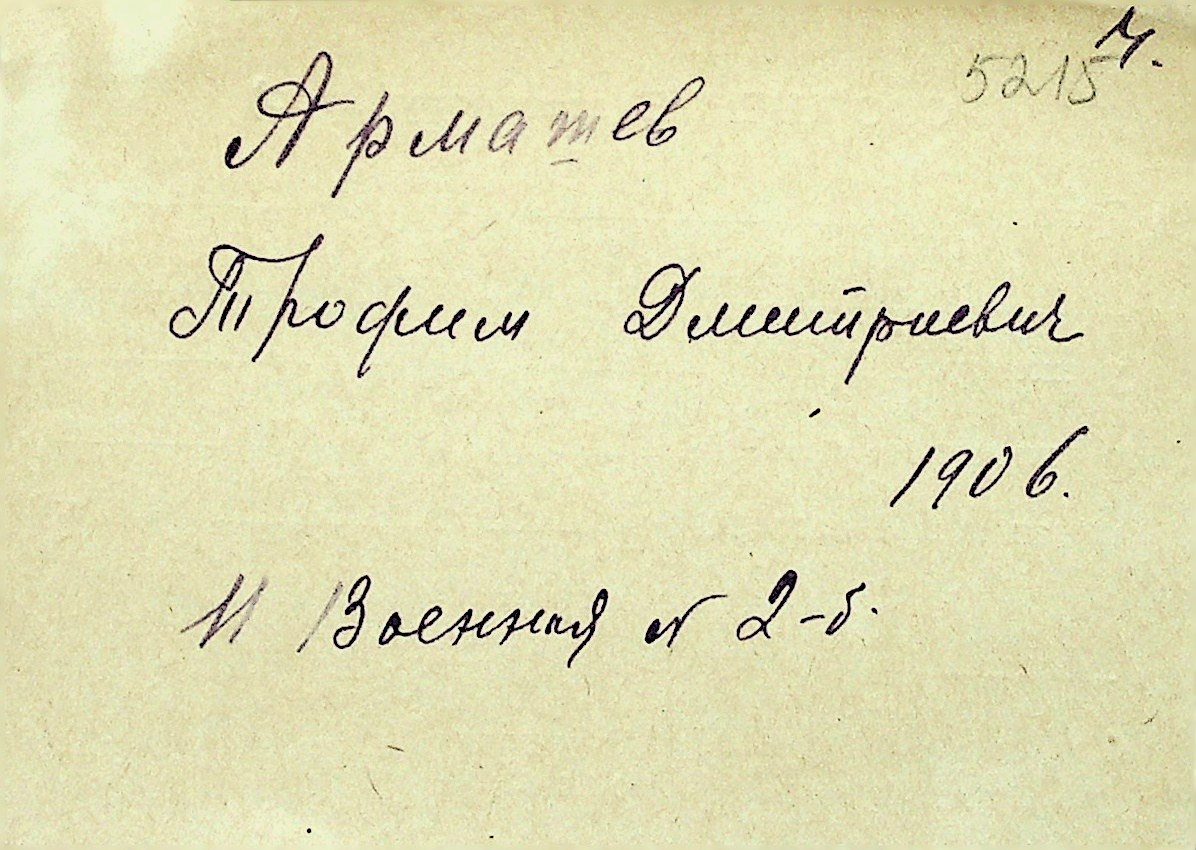 5215 Ч.
Армашев
Трофим Дмитриевич
1906.
11 Военная № 2-б.